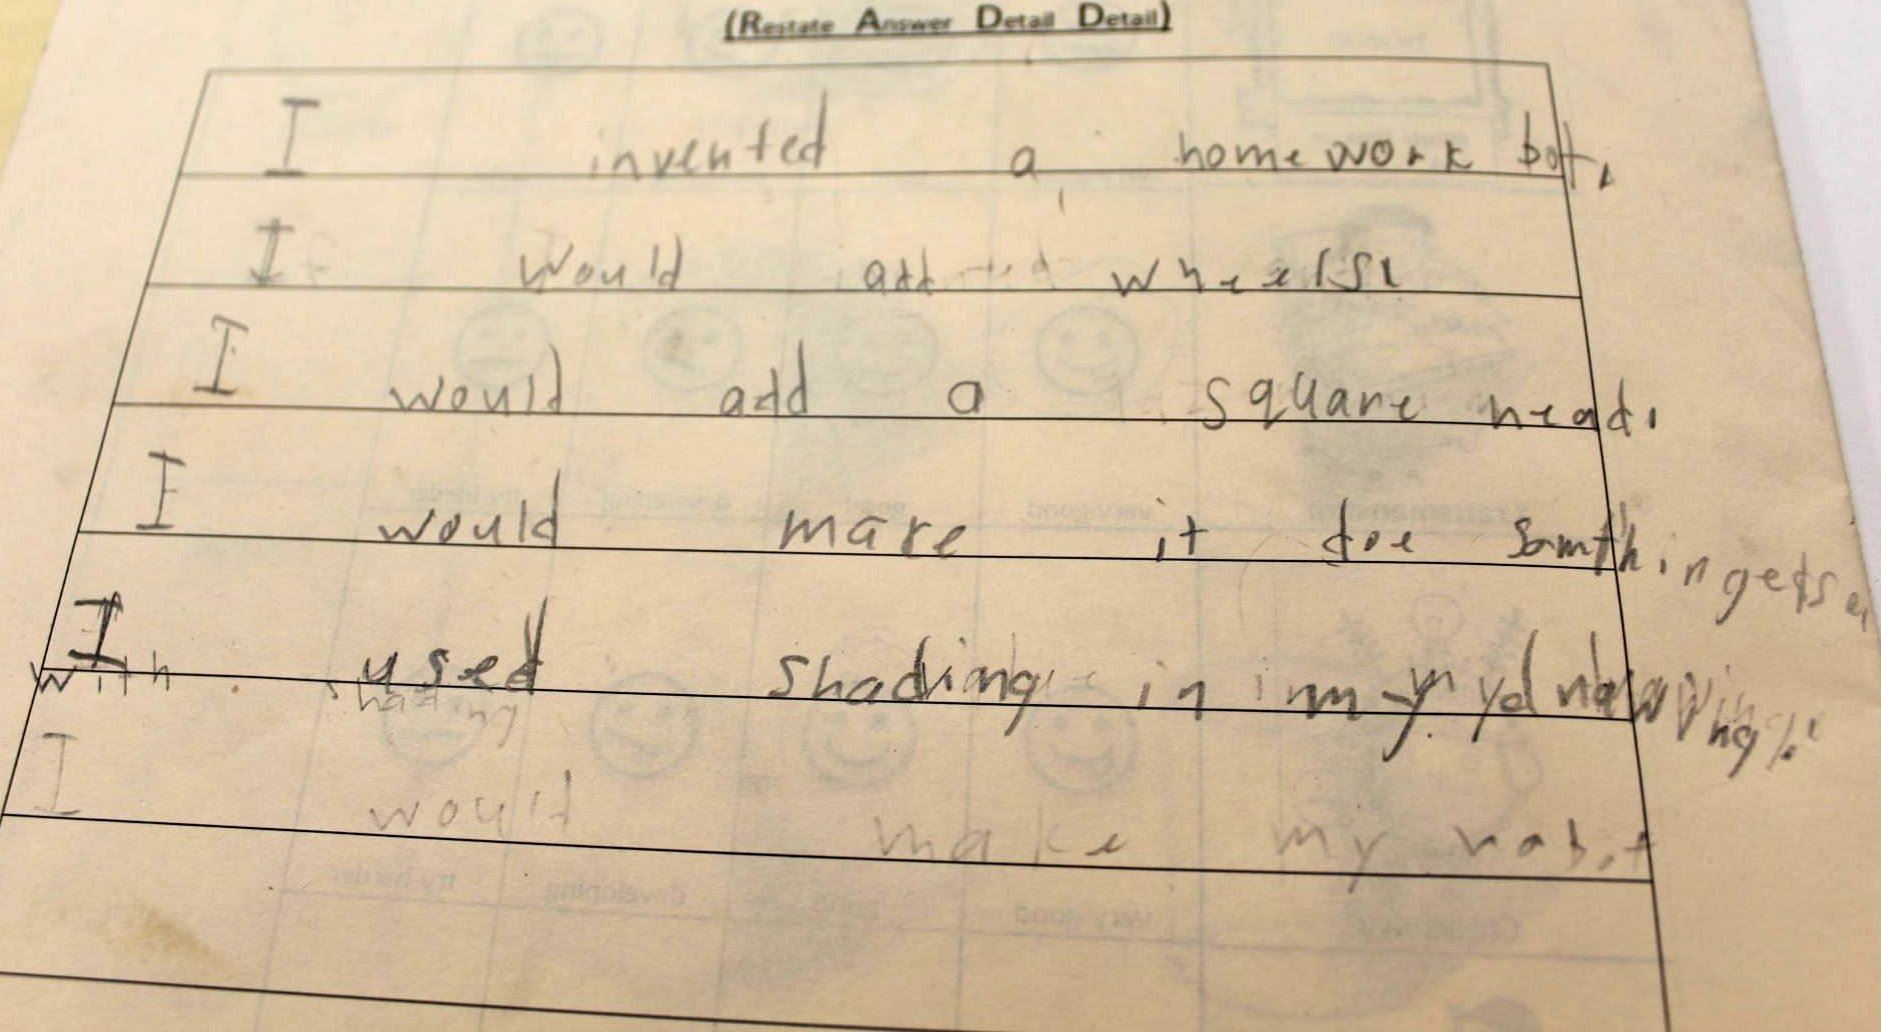 (Restate Answer Detail Detail)
I invented a homework bot.
I would add wheels.
I would add a square head.
I would mare it doe
I used shading in my
with shading
I would make my rabit